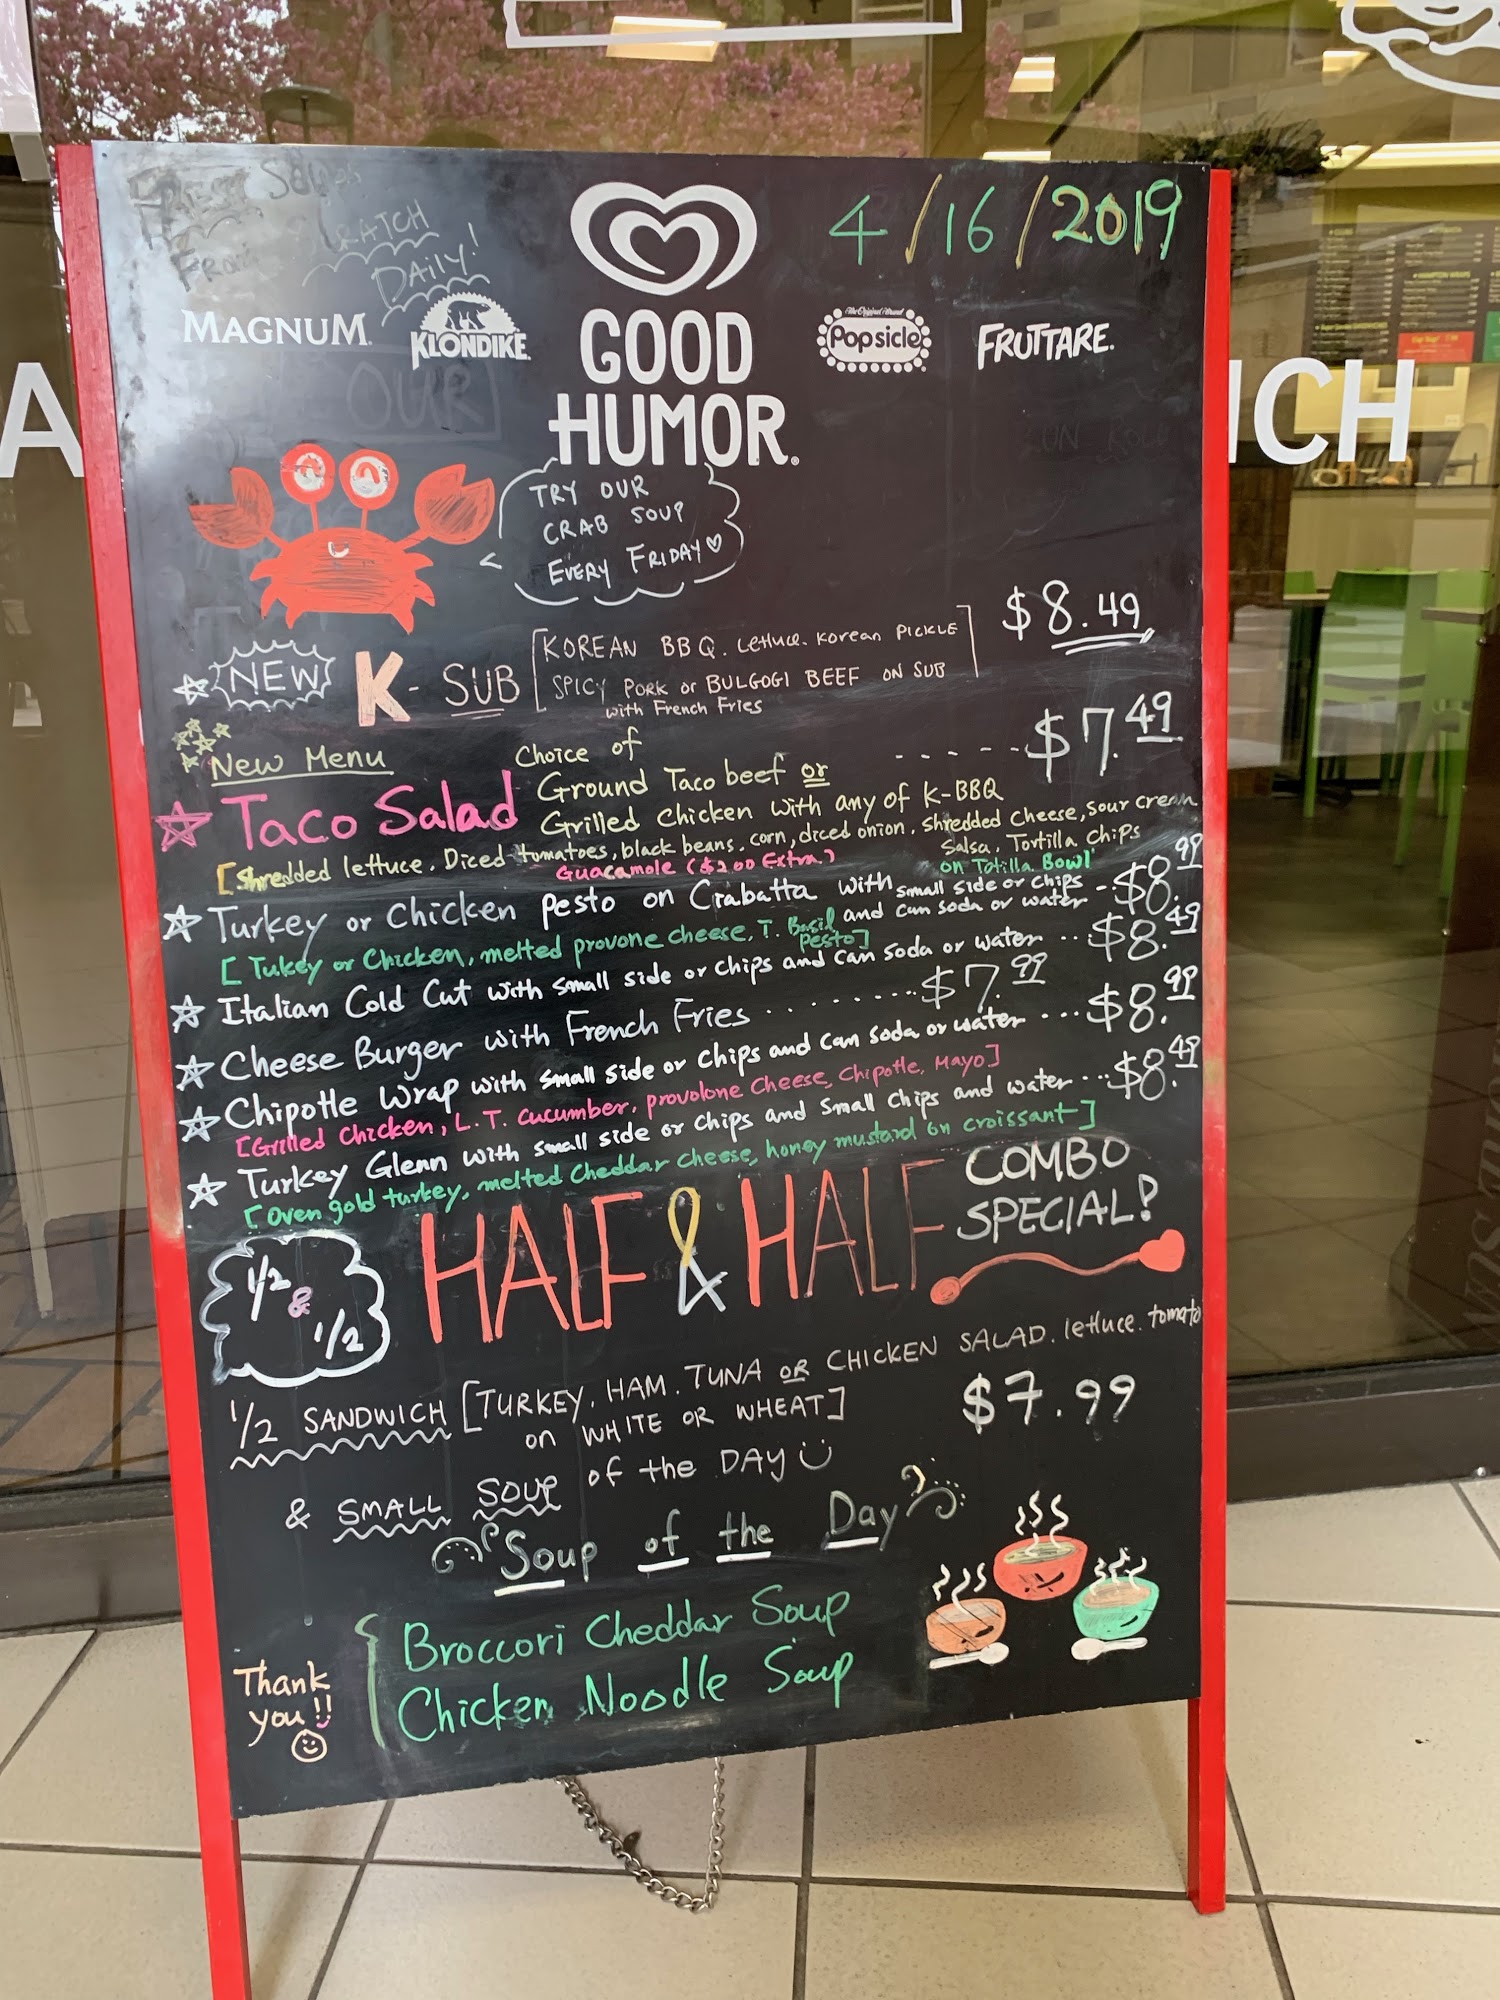 Fresh
From SCRATCH
DAILY!
4/16/2019
MAGNUM.
KLONDIKE.
GOOD
HUMOR.
The Original Brand
Popsicle
FRUTTARE.
OUR
A
ICH
TRY OUR
CRAB SOUP
EVERY FRIDAY
NEW K-SUB [KOREAN BBQ. Lettuce. Korean PICKLE] $8.49
SPICY PORK or BULGOGI BEEF ON SUB
with French Fries
New Menu
Choice of
Taco Salad Ground Taco beef or ..... $7.49
Grilled chicken with any of K-BBQ
[Shredded lettuce. Diced tomatoes, black beans, corn, diced onion. Shredded Cheese, sour cream
Salsa, Tortilla Chips
Guacamole ($2.00 Extra.) on Totilla Bowl
Turkey or Chicken Pesto on Crabatta with small side or chips .. $8.99
and can soda or water
[Tukey or Chicken, melted provone cheese, T. Basil
pesto]
Italian Cold Cut with small side or chips and can soda or water .. $8.49
Cheese Burger with French Fries ........ $7.99
Chipotle Wrap with small side or chips and can soda or water ... $8.99
[Grilled Chicken, L.T. cucumber, provolone cheese, chipotle, Mayo]
Turkey Glenn with small side or chips and small chips and water ... $8.49
[Oven gold turkey, melted cheddar cheese, honey mustard on croissant]
HALF & HALF COMBO
SPECIAL!
1/2
&
1/2
1/2 SANDWICH [TURKEY. HAM. TUNA OR CHICKEN SALAD. lettuce. tomato
on WHITE OR WHEAT] $7.99
& SMALL SOUP of the DAY
Soup of the Day
Broccori Cheddar Soup
Chicken Noodle Soup
Thank
you!!